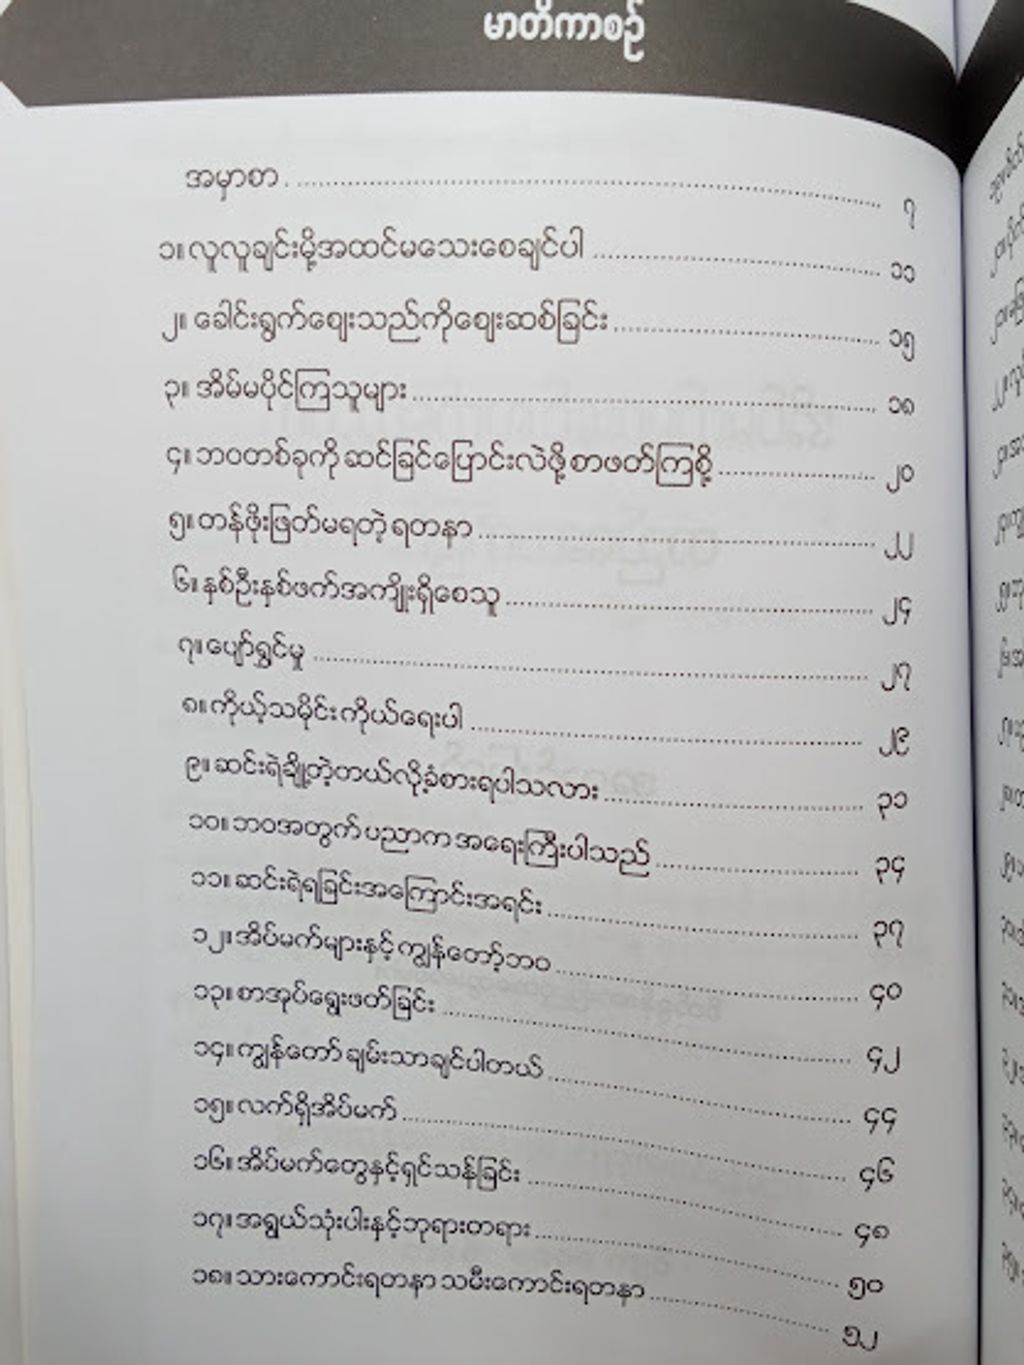 မာတိကာစဉ်
အမှာစာ ၇
၁။ လူလူချင်းမို့အထင်မသေးစေချင်ပါ ၁၁
၂။ ခေါင်းရွက်ဈေးသည်ကိုဈေးဆစ်ခြင်း ၁၅
၃။ အိမ်မပိုင်ကြသူများ ၁၈
၄။ ဘဝတစ်ခုကို ဆင်ခြင်ပြောင်းလဲဖို့ စာဖတ်ကြစို့ ၂၀
၅။ တန်ဖိုးဖြတ်မရတဲ့ ရတနာ ၂၂
၆။ နှစ်ဦးနှစ်ဖက်အကျိုးရှိစေသူ ၂၄
၇။ ပျော်ရွှင်မှု ၂၇
၈။ ကိုယ့်သမိုင်း ကိုယ်ရေးပါ ၂၉
၉။ ဆင်းရဲချို့တဲ့တယ်လို့ခံစားရပါသလား ၃၁
၁၀။ ဘဝအတွက် ပညာက အရေးကြီးပါသည် ၃၄
၁၁။ ဆင်းရဲရခြင်းအကြောင်းအရင်း ၃၇
၁၂။ အိပ်မက်များနှင့် ကျွန်တော့်ဘဝ ၄၀
၁၃။ စာအုပ်ရွေးဖတ်ခြင်း ၄၂
၁၄။ ကျွန်တော် ချမ်းသာချင်ပါတယ် ၄၄
၁၅။ လက်ရှိအိပ်မက် ၄၆
၁၆။ အိပ်မက်တွေနှင့်ရှင်သန်ခြင်း ၄၈
၁၇။ အရွယ်သုံးပါးနှင့်ဘုရားတရား ၅၀
၁၈။ သားကောင်းရတနာ သမီးကောင်းရတနာ ၅၂